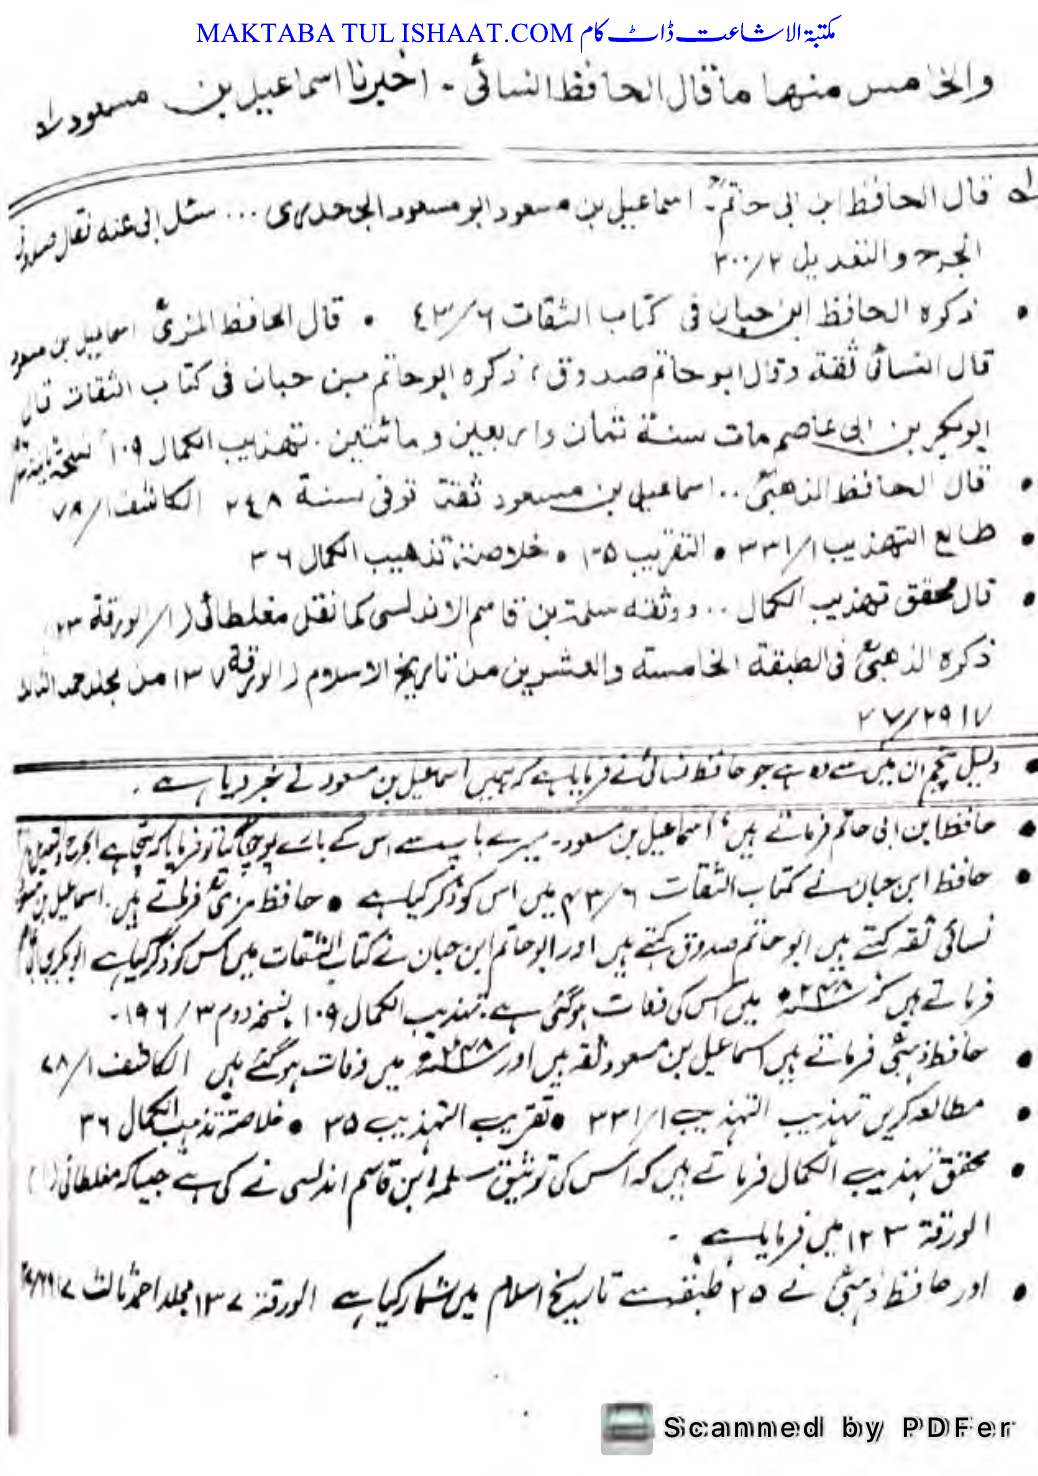 MAKTABA TUL ISHAAT.COM مکتبة الاشاعت ڈاٹ کام
والخامس منها ما قال الحافظ النسائی - اخبرنا اسماعيل بن مسعود
قال الحافظ ابن ابی حاتم اسماعيل بن مسعود ابو مسعود الجحدری ... سئل ابی عنه فقال صدوق
الجرح والتعديل ٢٠٠/٢
• ذكره الحافظ ابن حبان فی كتاب الثقات ٤٣/٦ • قال الحافظ المزی اسماعيل بن مسعود
قال النسائی ثقة وقال ابو حاتم صدوق، ذكره ابو حاتم بن حبان فی كتاب الثقات قال
ابوبكر بن ابی عاصم مات سنة ثمان واربعين ومائتين . تهذيب الكمال ١٠٩
• قال الحافظ الذهبی .. اسماعيل بن مسعود ثقة توفی سنة ٢٤٨ الكاشف ٧٨/١
• طالع التهذيب ٣٣١/١ • التقريب • خلاصة تذهيب الكمال ٣٦
• قال محقق تهذيب الكمال .. ووثقه مسلمة بن قاسم الاندلسی كما نقل مغلطائی (١/الورقة ١٢٣)
ذكره الذهبی فی الطبقة الخامسة والعشرين من تاريخ الاسلام (الورقة ١٣٧ من مجلد احمد الثالث
٢٩١٧/
• دلیل پنجم ان میں سے وہ ہے جو حافظ نسائی نے فرمایا ہے کہ ہمیں اسماعیل بن مسعود نے خبر دیا ہے .
• حافظ ابن ابی حاتم فرماتے ہیں، اسماعیل بن مسعود - میرے باپ سے اس کے بارے پوچھا گیا تو فرمایا کہ سچا ہے الجرح والتعدیل
• حافظ ابن حبان نے کتاب الثقات ٤٣/٦ میں اس کو ذکر کیا ہے • حافظ مزی فرماتے ہیں . اسماعیل بن مسعود
نسائی ثقہ کہتے ہیں ابو حاتم صدوق کہتے ہیں اور ابو حاتم ابن حبان نے کتاب الثقات میں اس کو ذکر کیا ہے ابوبکر بن
فرماتے ہیں کہ ٢٤٨ میں اس کی وفات ہو گئی ہے . تہذیب الکمال ١٠٩ نسخہ دوم ١٩٦/٣ -
• حافظ ذہبی فرماتے ہیں اسماعیل بن مسعود ثقہ ہیں اور ٢٤٨ میں وفات ہو گئے ہیں الکاشف ٧٨/١
• مطالعہ کریں تہذیب التہذیب ٣٣١/١ • تقریب التہذیب ٣٥ • خلاصة تذهيب الکمال ٣٦
• محقق تہذیب الکمال فرماتے ہیں کہ اس کی توثیق مسلمہ ابن قاسم اندلسی نے کی ہے جیسا کہ مغلطائی (١/
الورقة ١٢٣ میں فرمایا ہے -
• اور حافظ ذہبی نے ٢٥ طبقہ سے تاریخ اسلام میں شمار کیا ہے الورقة ١٣٧ مجلد احمد ثالث ٢٩١٧/
Scanned by PDFer